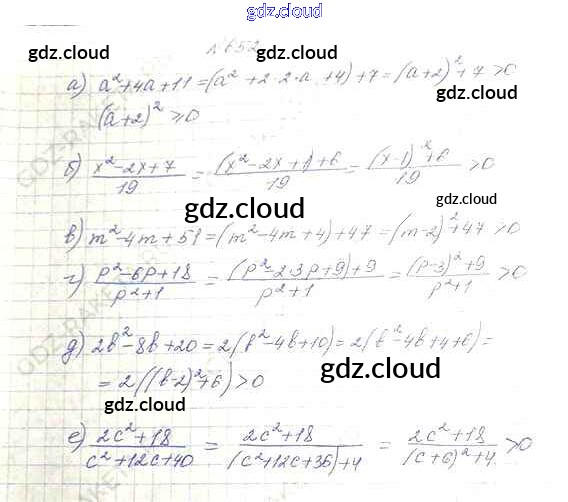 gdz.cloud
№652
gdz.cloud gdz.cloud
а) a²+4a+11=(a²+2·2·a+4)+7=(a+2)²+7>0
gdz.cloud
(a+2)²≥0
б) (x²-2x+7)/19 = ((x²-2x+1)+6)/19 = ((x-1)²+6)/19 >0
gdz.cloud
в) m²-4m+51=(m²-4m+4)+47=(m-2)²+47>0
г) (p²-6p+18)/(p²+1) = ((p²-2·3p+9)+9)/(p²+1) = ((p-3)²+9)/(p²+1) >0
gdz.cloud
д) 2b²-8b+20=2(b²-4b+10)=2(b²-4b+4+6)=
gdz.cloud
=2((b-2)²+6)>0
gdz.cloud gdz.cloud
е) (2c²+18)/(c²+12c+40) = (2c²+18)/((c²+12c+36)+4) = (2c²+18)/((c+6)²+4) >0
gdz.cloud